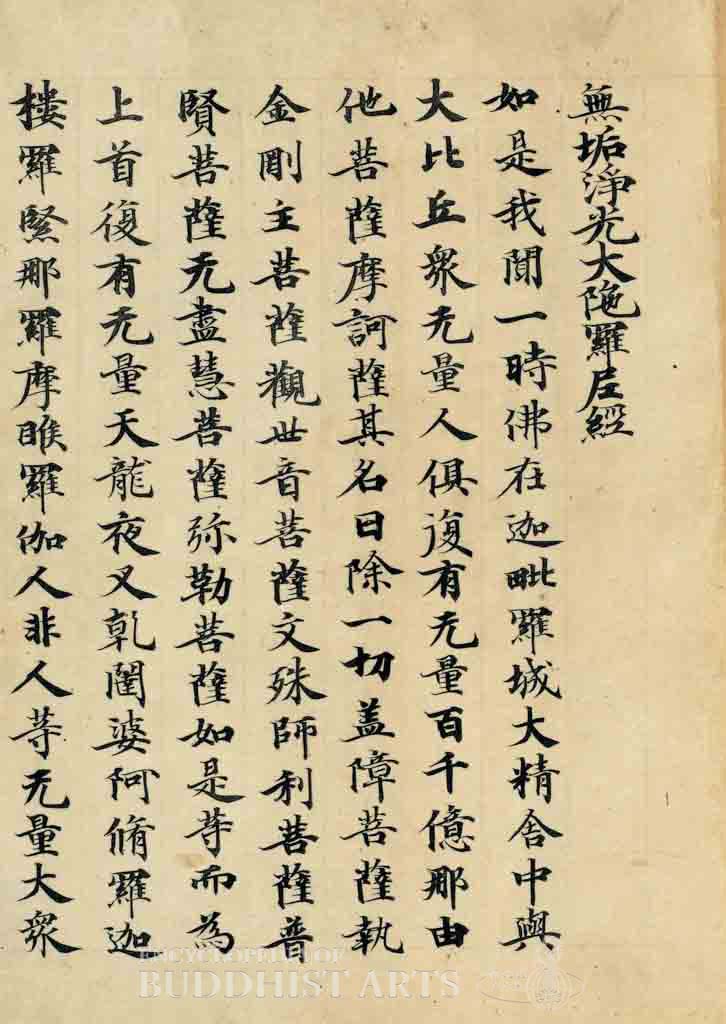 無垢淨光大陁羅尼經
如是我聞一時佛在迦毗羅城大精舍中與
大比丘衆无量人俱復有无量百千億那由
他菩薩摩訶薩其名曰除一切盖障菩薩執
金剛主菩薩觀世音菩薩文殊師利菩薩普
賢菩薩无盡慧菩薩弥勒菩薩如是等而為
上首復有无量天龍夜叉乹闥婆阿脩羅迦
樓羅緊那羅摩睺羅伽人非人等无量大衆
ENCYCLOPEDIA OF
BUDDHIST ARTS